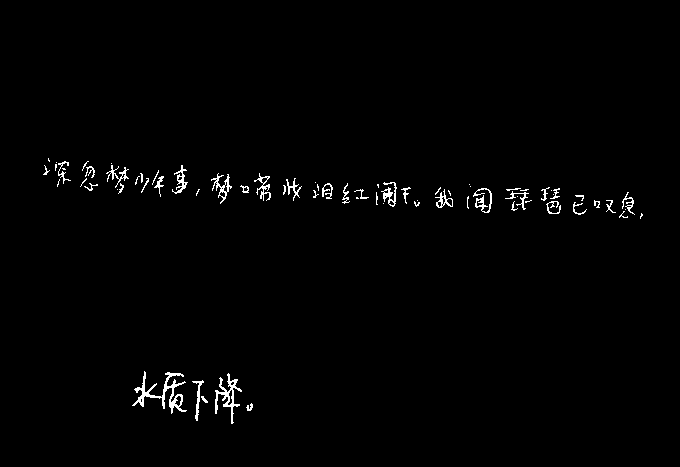 深忽梦少年事,梦啼妆泪红阑干。我闻琵琶已叹息,
水质下降。